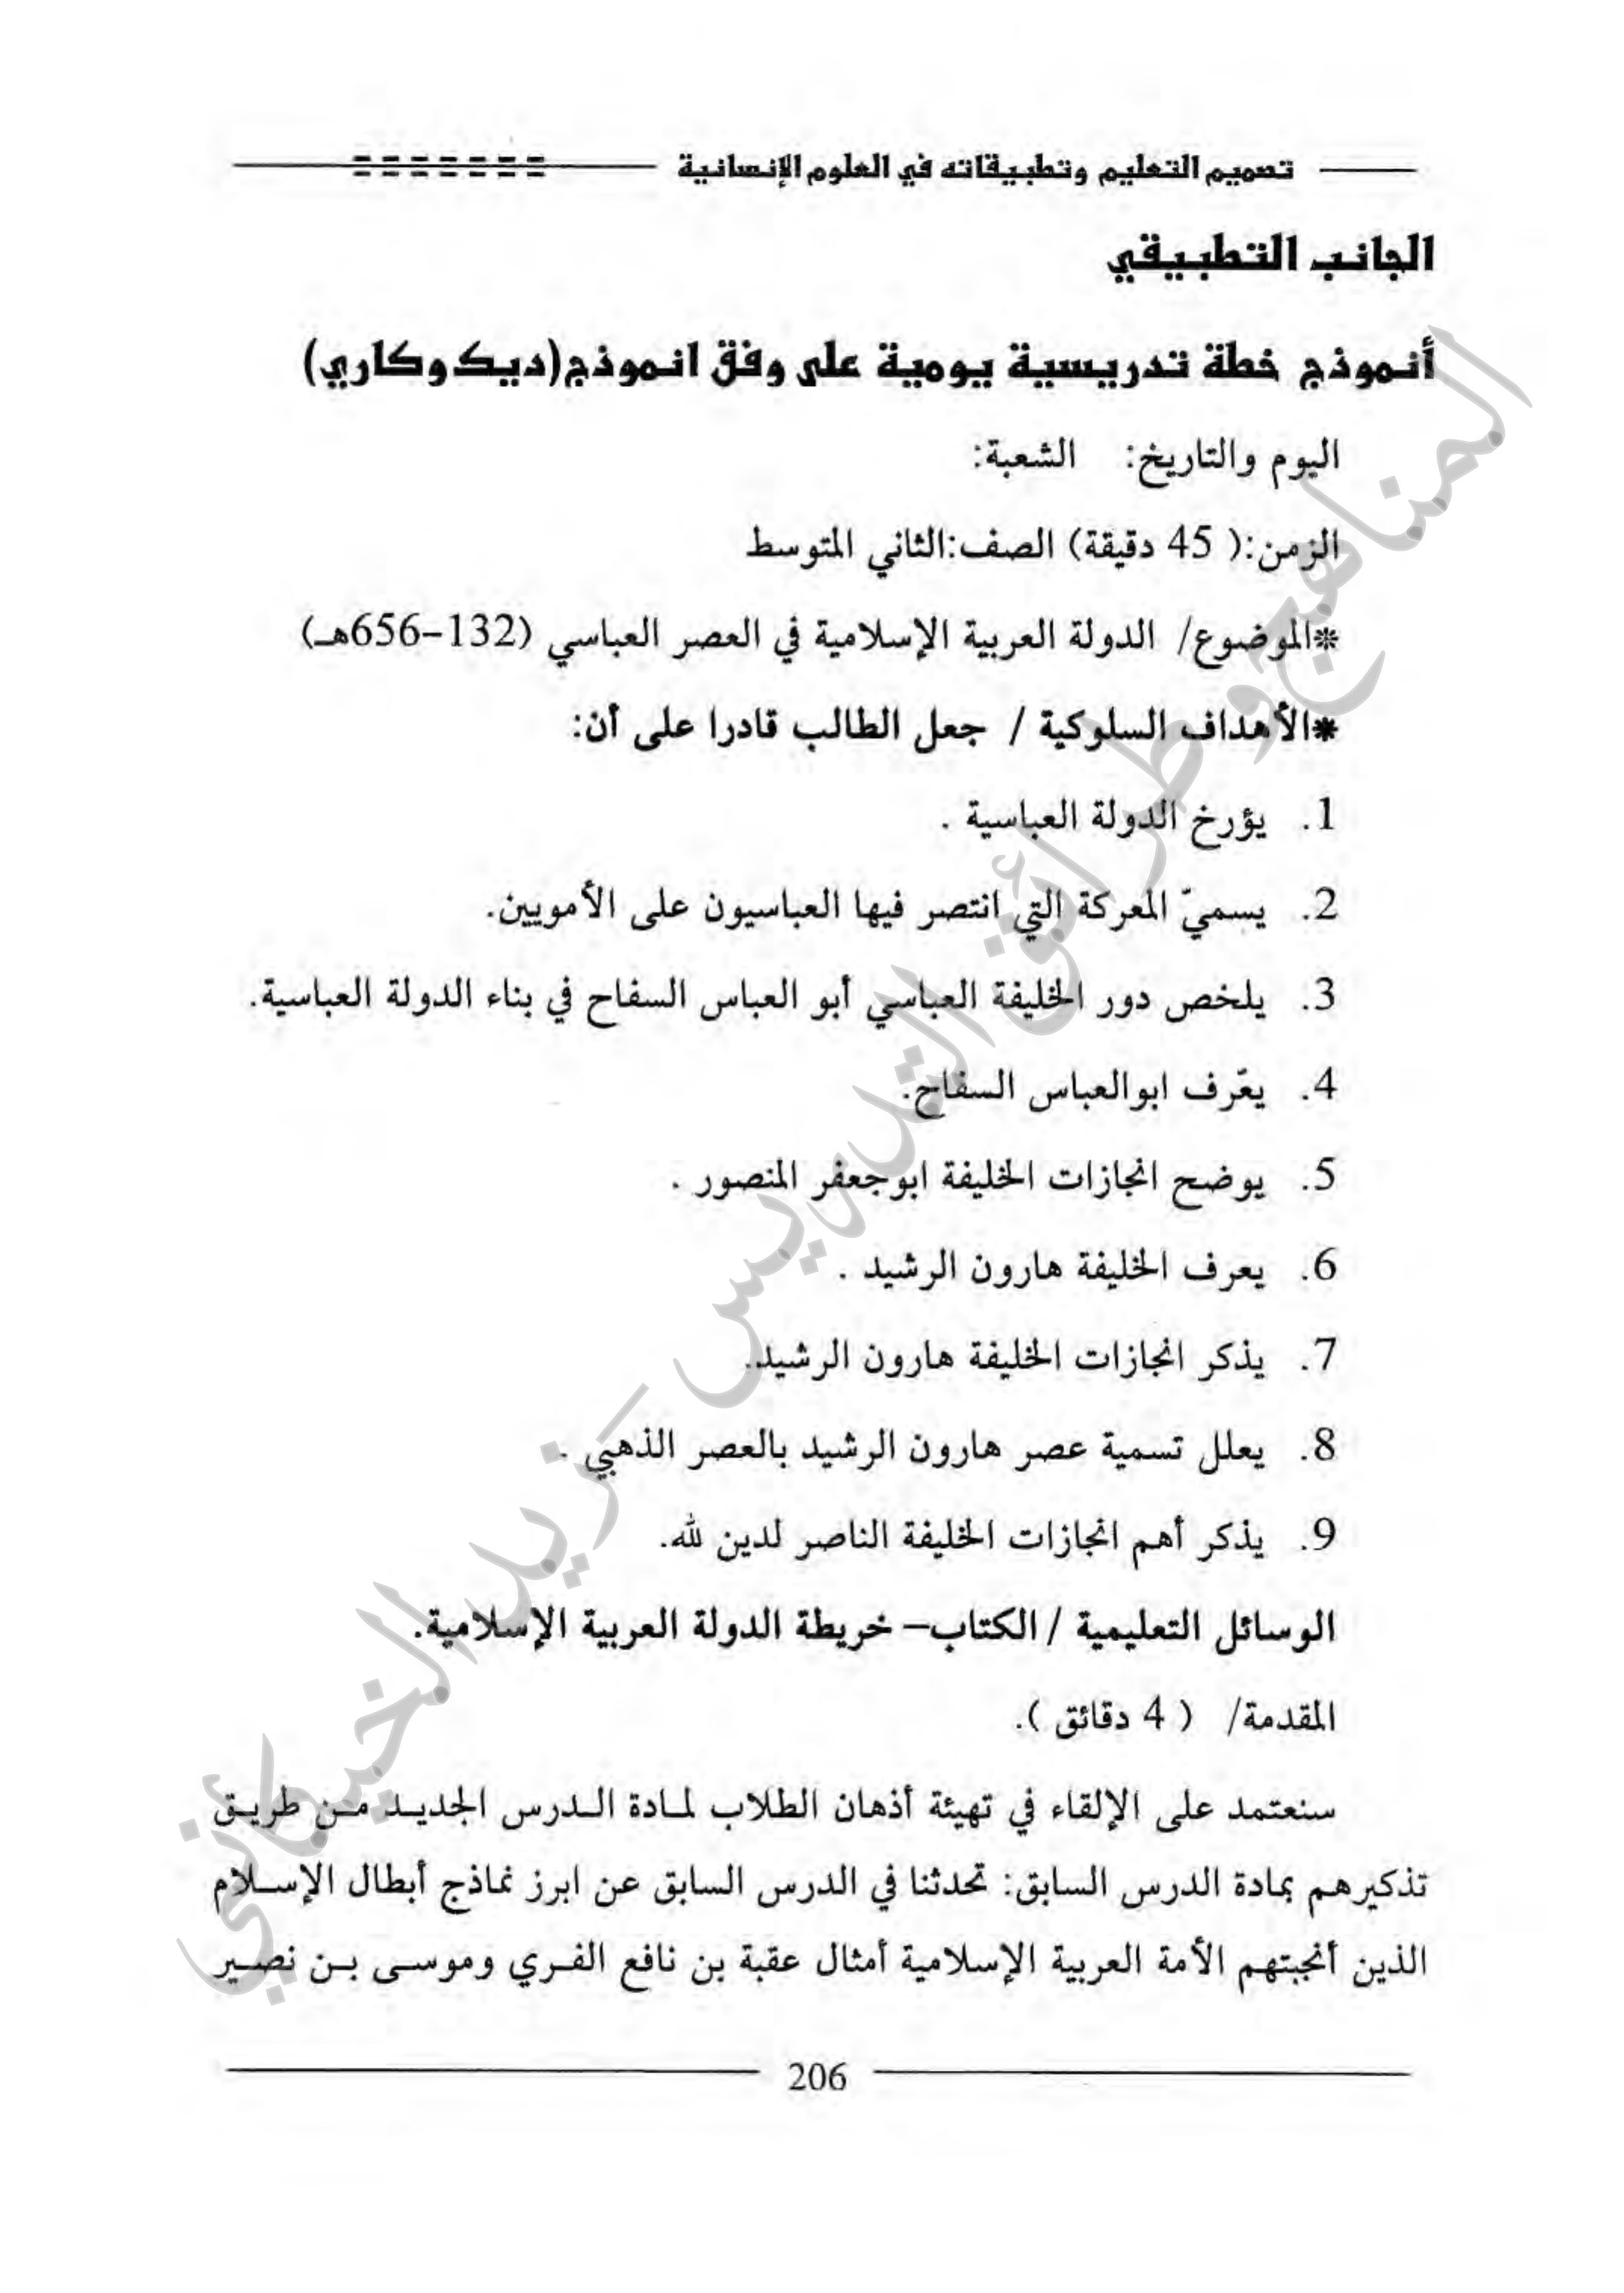 تصميم التعليم وتطبيقاته في العلوم الإنسانية
الجانب التطبيقي
أنموذج خطة تدريسية يومية على وفق انموذج(ديك وكاري)
اليوم والتاريخ: الشعبة:
الزمن:( 45 دقيقة) الصف:الثاني المتوسط
*الموضوع/ الدولة العربية الإسلامية في العصر العباسي (132-656هـ)
*الأهداف السلوكية / جعل الطالب قادرا على أن:
1. يؤرخ الدولة العباسية .
2. يسميّ المعركة التي انتصر فيها العباسيون على الأمويين.
3. يلخص دور الخليفة العباسي أبو العباس السفاح في بناء الدولة العباسية.
4. يعّرف ابوالعباس السفاح.
5. يوضح انجازات الخليفة ابوجعفر المنصور .
6. يعرف الخليفة هارون الرشيد .
7. يذكر انجازات الخليفة هارون الرشيد.
8. يعلل تسمية عصر هارون الرشيد بالعصر الذهبي .
9. يذكر أهم انجازات الخليفة الناصر لدين لله.
الوسائل التعليمية / الكتاب– خريطة الدولة العربية الإسلامية.
المقدمة/ ( 4 دقائق ).
سنعتمد على الإلقاء في تهيئة أذهان الطلاب لمادة الدرس الجديد من طريق
تذكيرهم بمادة الدرس السابق: تحدثنا في الدرس السابق عن ابرز نماذج أبطال الإسلام
الذين أنجبتهم الأمة العربية الإسلامية أمثال عقبة بن نافع الفري وموسى بن نصير
206
المناهج وطرائق التدريس - زيد الخيكاني